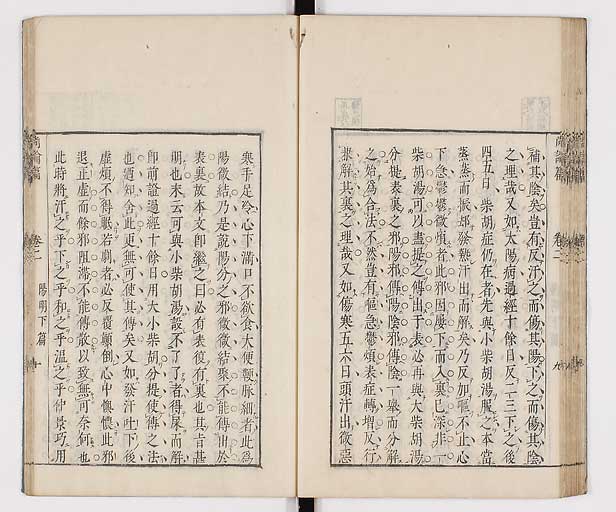 補其陰矣豈有反汗之而傷其陽下之而傷其陰
之理哉又如太陽病過經十餘日反二三下之後
四五日柴胡症仍在者先與小柴胡湯服之本當
蒸蒸而振却發熱汗出而解矣乃反加嘔不止心
下急鬱鬱微煩者此邪因屢下而入裏已深非一
柴胡湯可以盡提之傳出于表必再與大柴胡湯
分提表裏之邪陽邪傳陽陰邪傳陰一舉而分解
之始為合法不然豈有嘔急鬱煩表症轉增反行
兼解其裏之理哉又如傷寒五六日頭汗出微惡
寒手足冷心下滿口不欲食大便鞕脉細者此為
陽微結乃是說陽分之邪微微結聚不能傳出於
表裏故本文即繼之曰必有表復有裏也其旨甚
明也末云可與小柴胡湯設不了了者得屎而解
即前證過經十餘日用大小柴胡分提使傳之法
也適如舍此更無可使其傳矣又如發汗吐下後
虛煩不得眠若劇者必反覆顛倒心中懊憹此邪
退正虛而餘邪阻滯不能傳散以致無可奈何也
此時將汗之乎下之乎和之乎溫之乎仲景巧用
尚論篇
卷二
陽明下篇